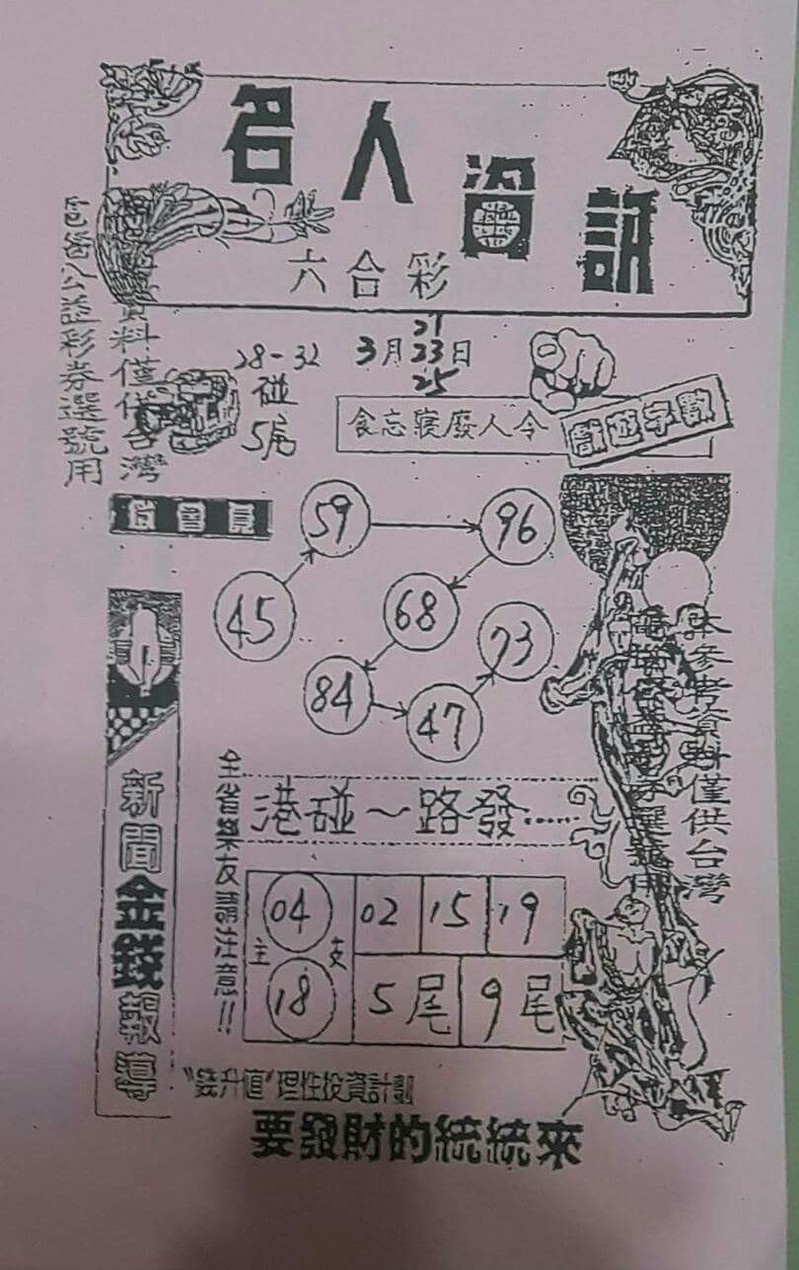 名人資訊
六合彩
資料僅供台灣
公益彩券選號用
28-32
碰
5尾
21
3月23日
25
食忘寢廢人令
數字遊戲
會員
45
59
96
68
84
47
73
新聞金錢報導
全省樂友請注意!!
港碰~路發.....
04
主支
18
02
15
19
5尾
9尾
本參考資料僅供台灣
"發升值"理性投資計劃
要發財的統統來